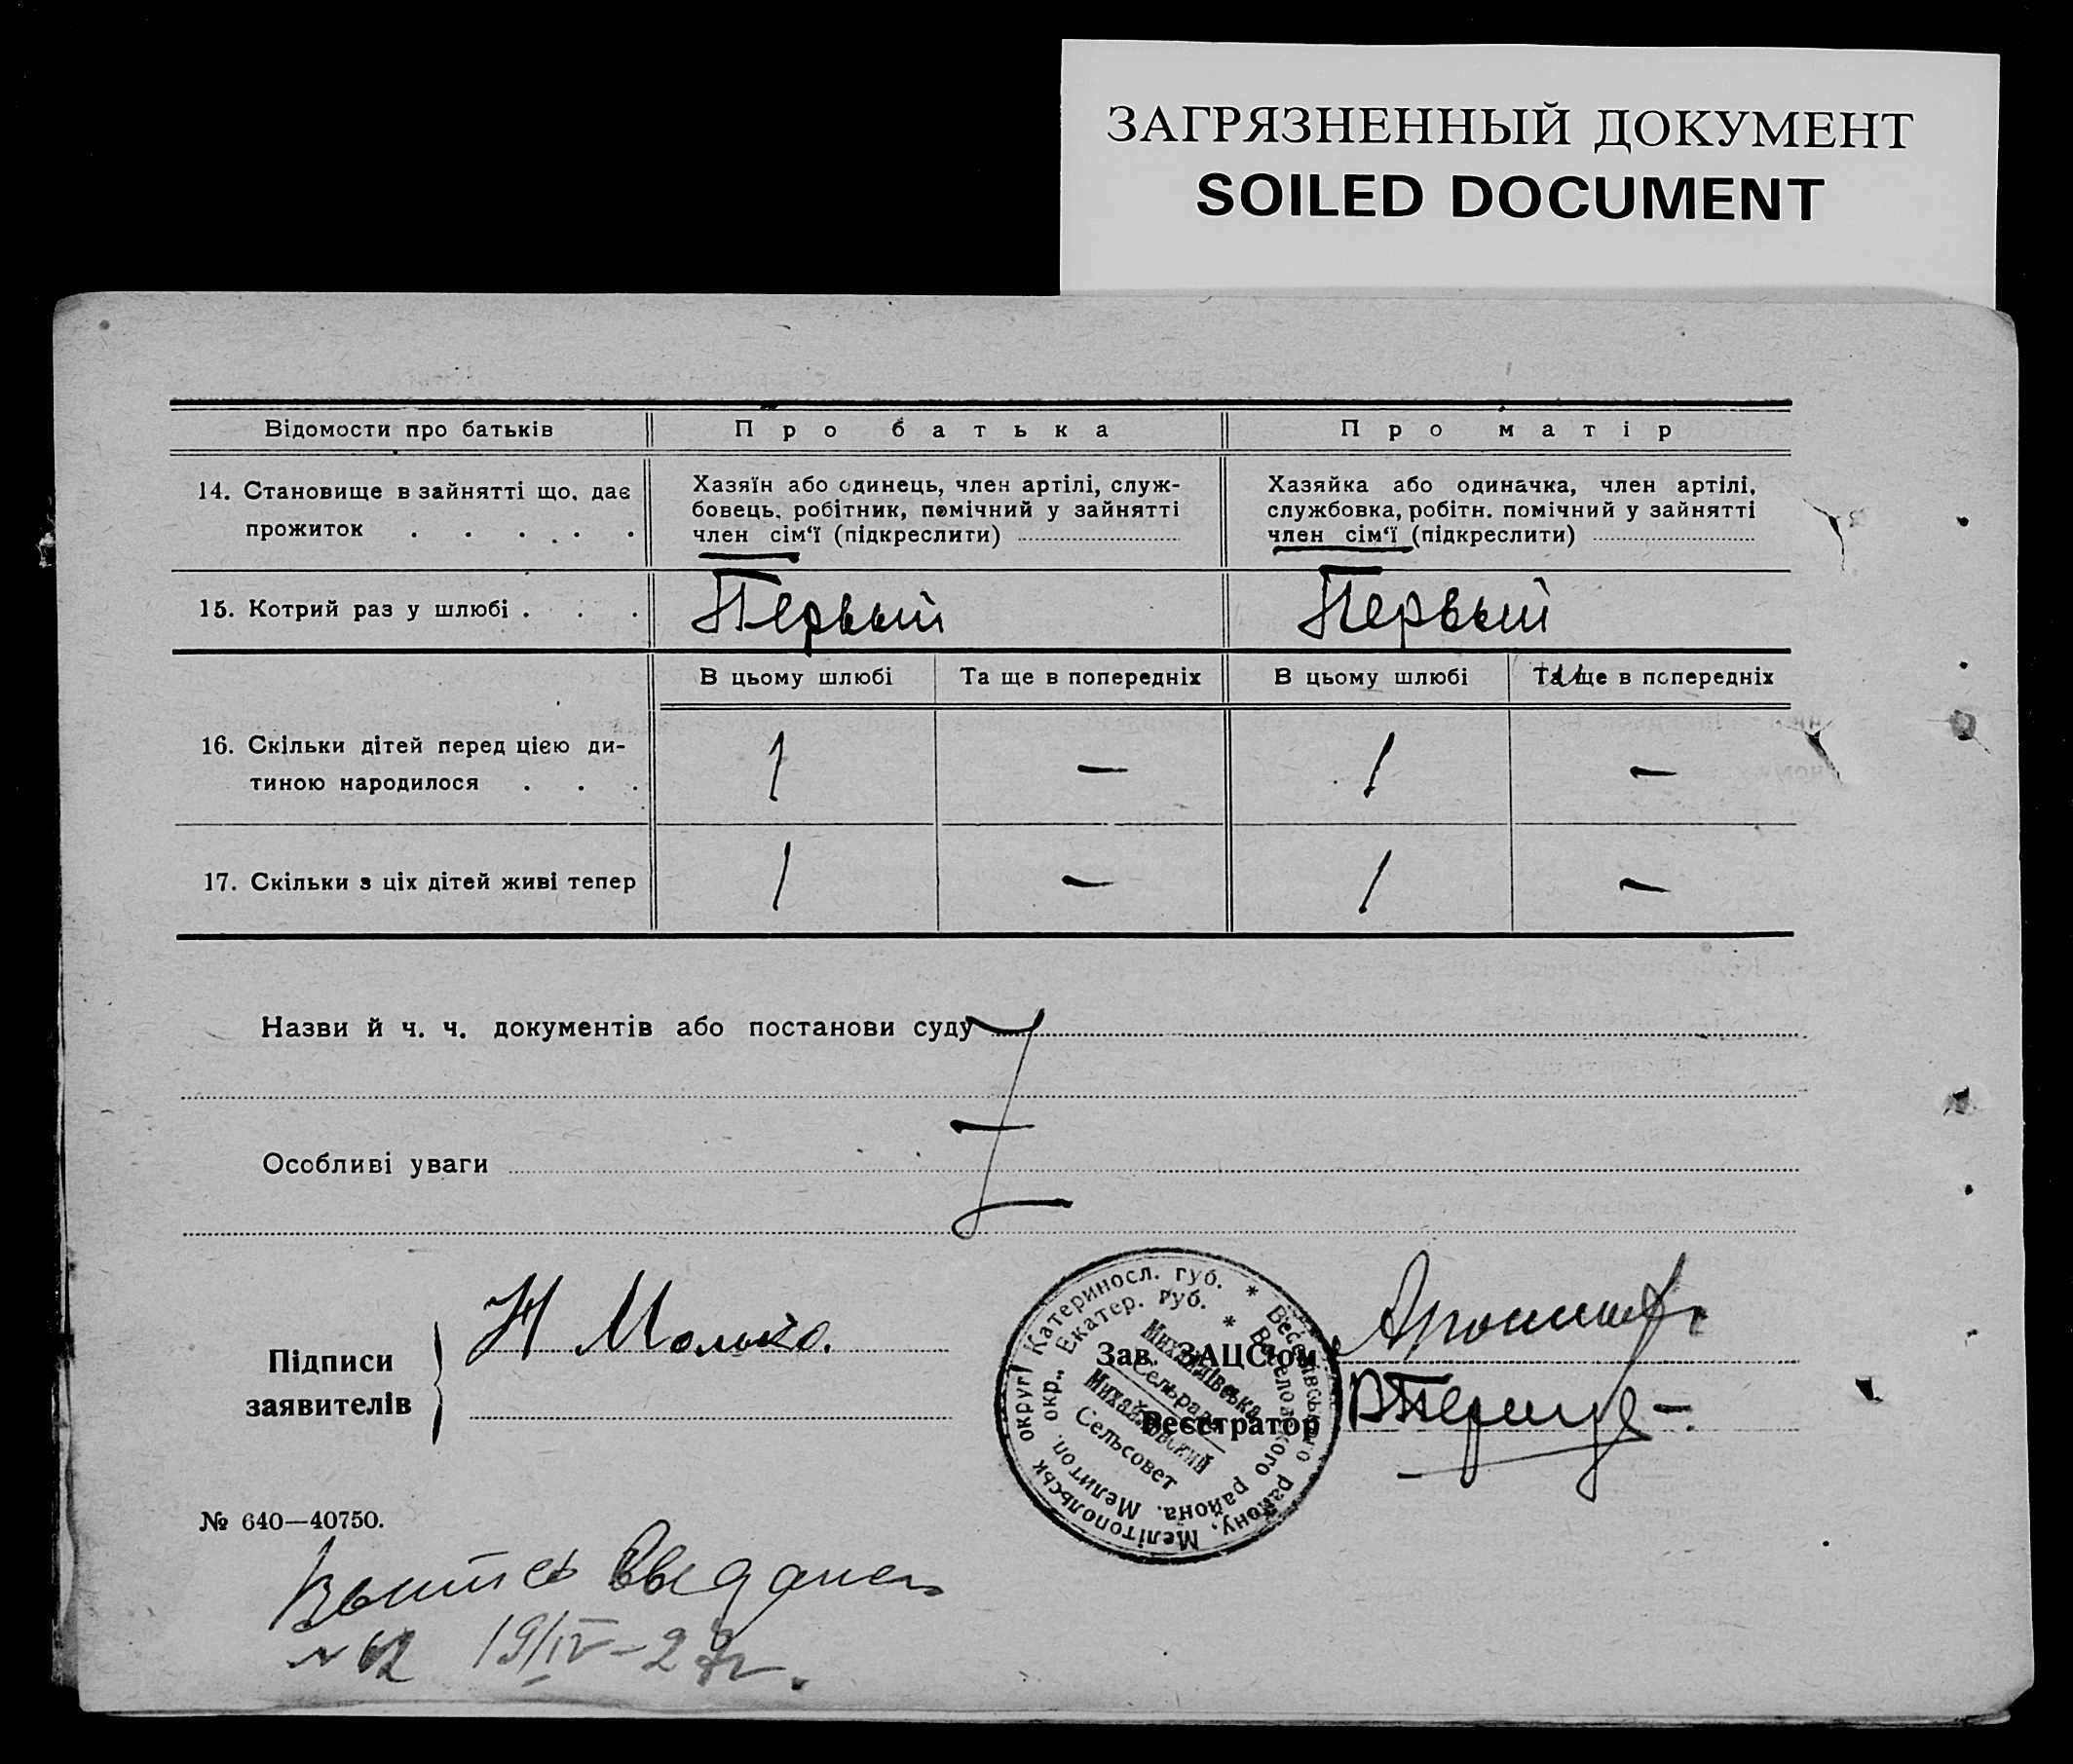 ЗАГРЯЗНЕННЫЙ ДОКУМЕНТ
SOILED DOCUMENT
Відомости про батьків
Про батька
Про матір
14. Становище в зайнятті що, дає
прожиток . . . . .
Хазяїн або одинець, член артілі, служ-
бовець, робітник, помічний у зайнятті
член сім‘ї (підкреслити)
Хазяйка або одиначка, член артілі,
службовка, робітн. помічний у зайнятті
член сім‘ї (підкреслити)
15. Котрий раз у шлюбі . . .
Первый
Первый
В цьому шлюбі
Та ще в попередніх
В цьому шлюбі
Та ще в попередніх
16. Скільки дітей перед цією ди-
тиною народилося . . .
1
—
1
—
17. Скільки з ціх дітей живі тепер
1
—
1
—
Назви й ч. ч. документів або постанови суду
Особливі уваги
Підписи
заявителів
Н
Зав. ЗАЦС‘ом
Реєстратор
Мелітопольськ округи Катериносл. губ. * Веселівського району,
Мелитоп. окр., Екатер. губ. * Веселовского района.
Михайлівська
Сельрада
Михайловский
Сельсовет
№ 640—40750.
Выпись Выдана
№ 12 19/IV-27г.